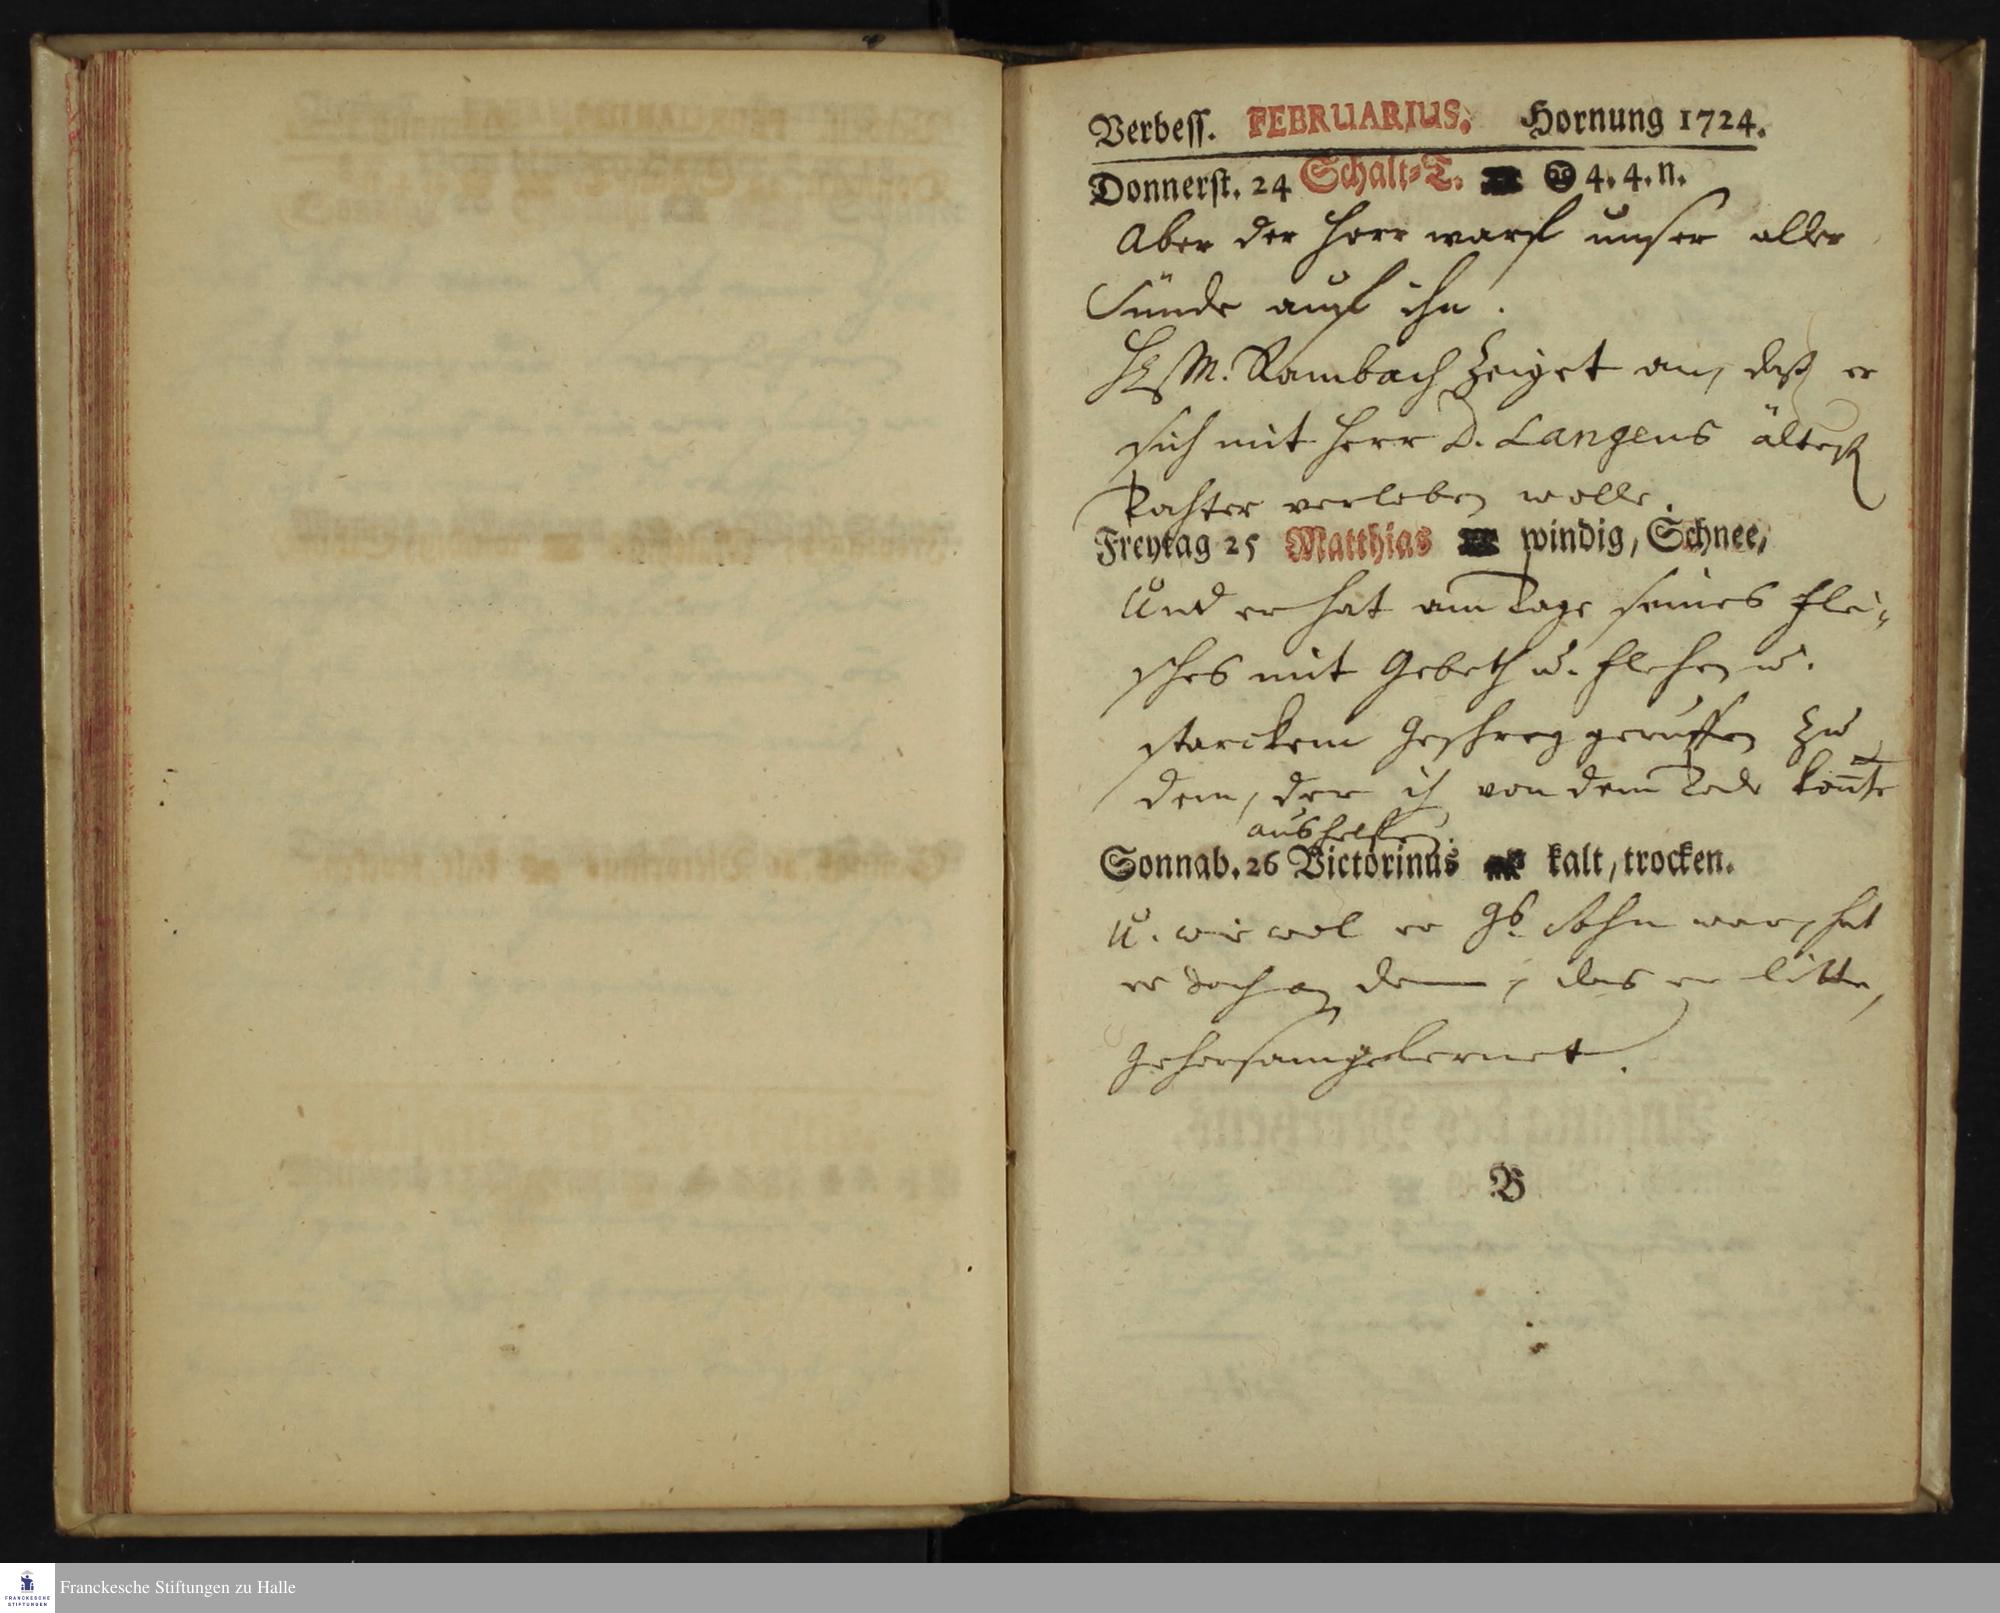 Verbess. FEBRUARIUS. Hornung 1724.
Donnerst. 24 Schalt-T. 4. 4. n.
Aber der Herr warf unser aller
Sünde auf ihn.
M. Rambach zeiget an, daß er
sich mit Herr D. Langens ältest
Tochter verloben wolle.
Freytag 25 Matthias windig, Schnee,
Und er hat am Tage seines Flei-
sches mit Gebeth u. Flehen u.
starckem Geschrey geruffen zu
dem, der ih von dem Tode kon̄te
aushelffen.
Sonnab. 26 Victorinus kalt, trocken.
U. wie wol er Gs. Sohn war, hat
er doch an dem, das er litte,
gehorsam gelernet.
B
Franckesche Stiftungen zu Halle
FRANCKESCHE
STIFTUNGEN